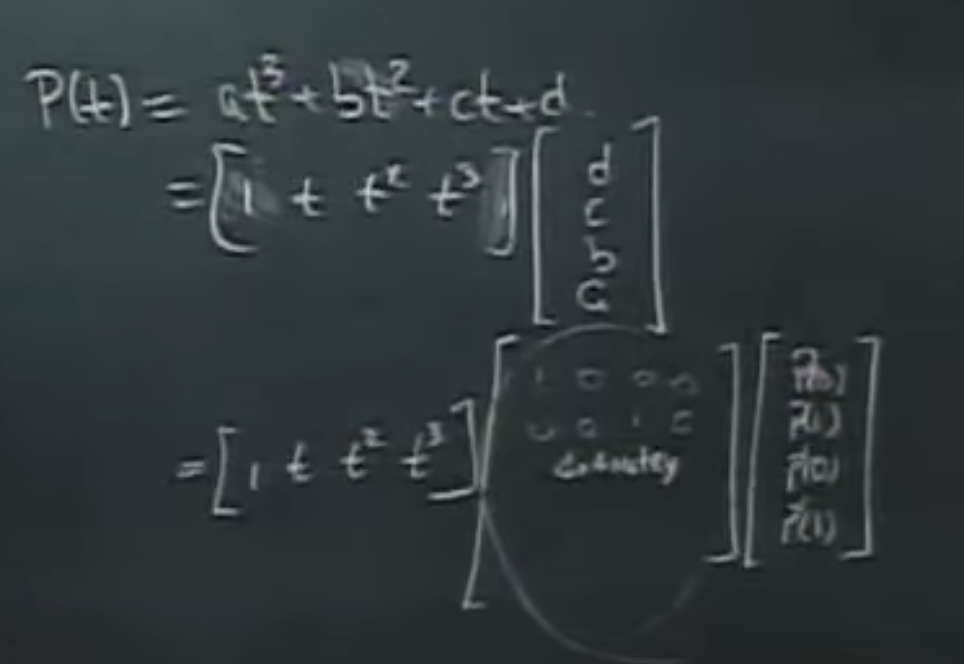 P(t) = at³ + bt² + ct + d
= [1 t t² t³] [d c b a]
= [1 t t² t³] [1 0 0 0
0 0 1 0
Geometry] [P(0) P(1) P'(0) P'(1)]